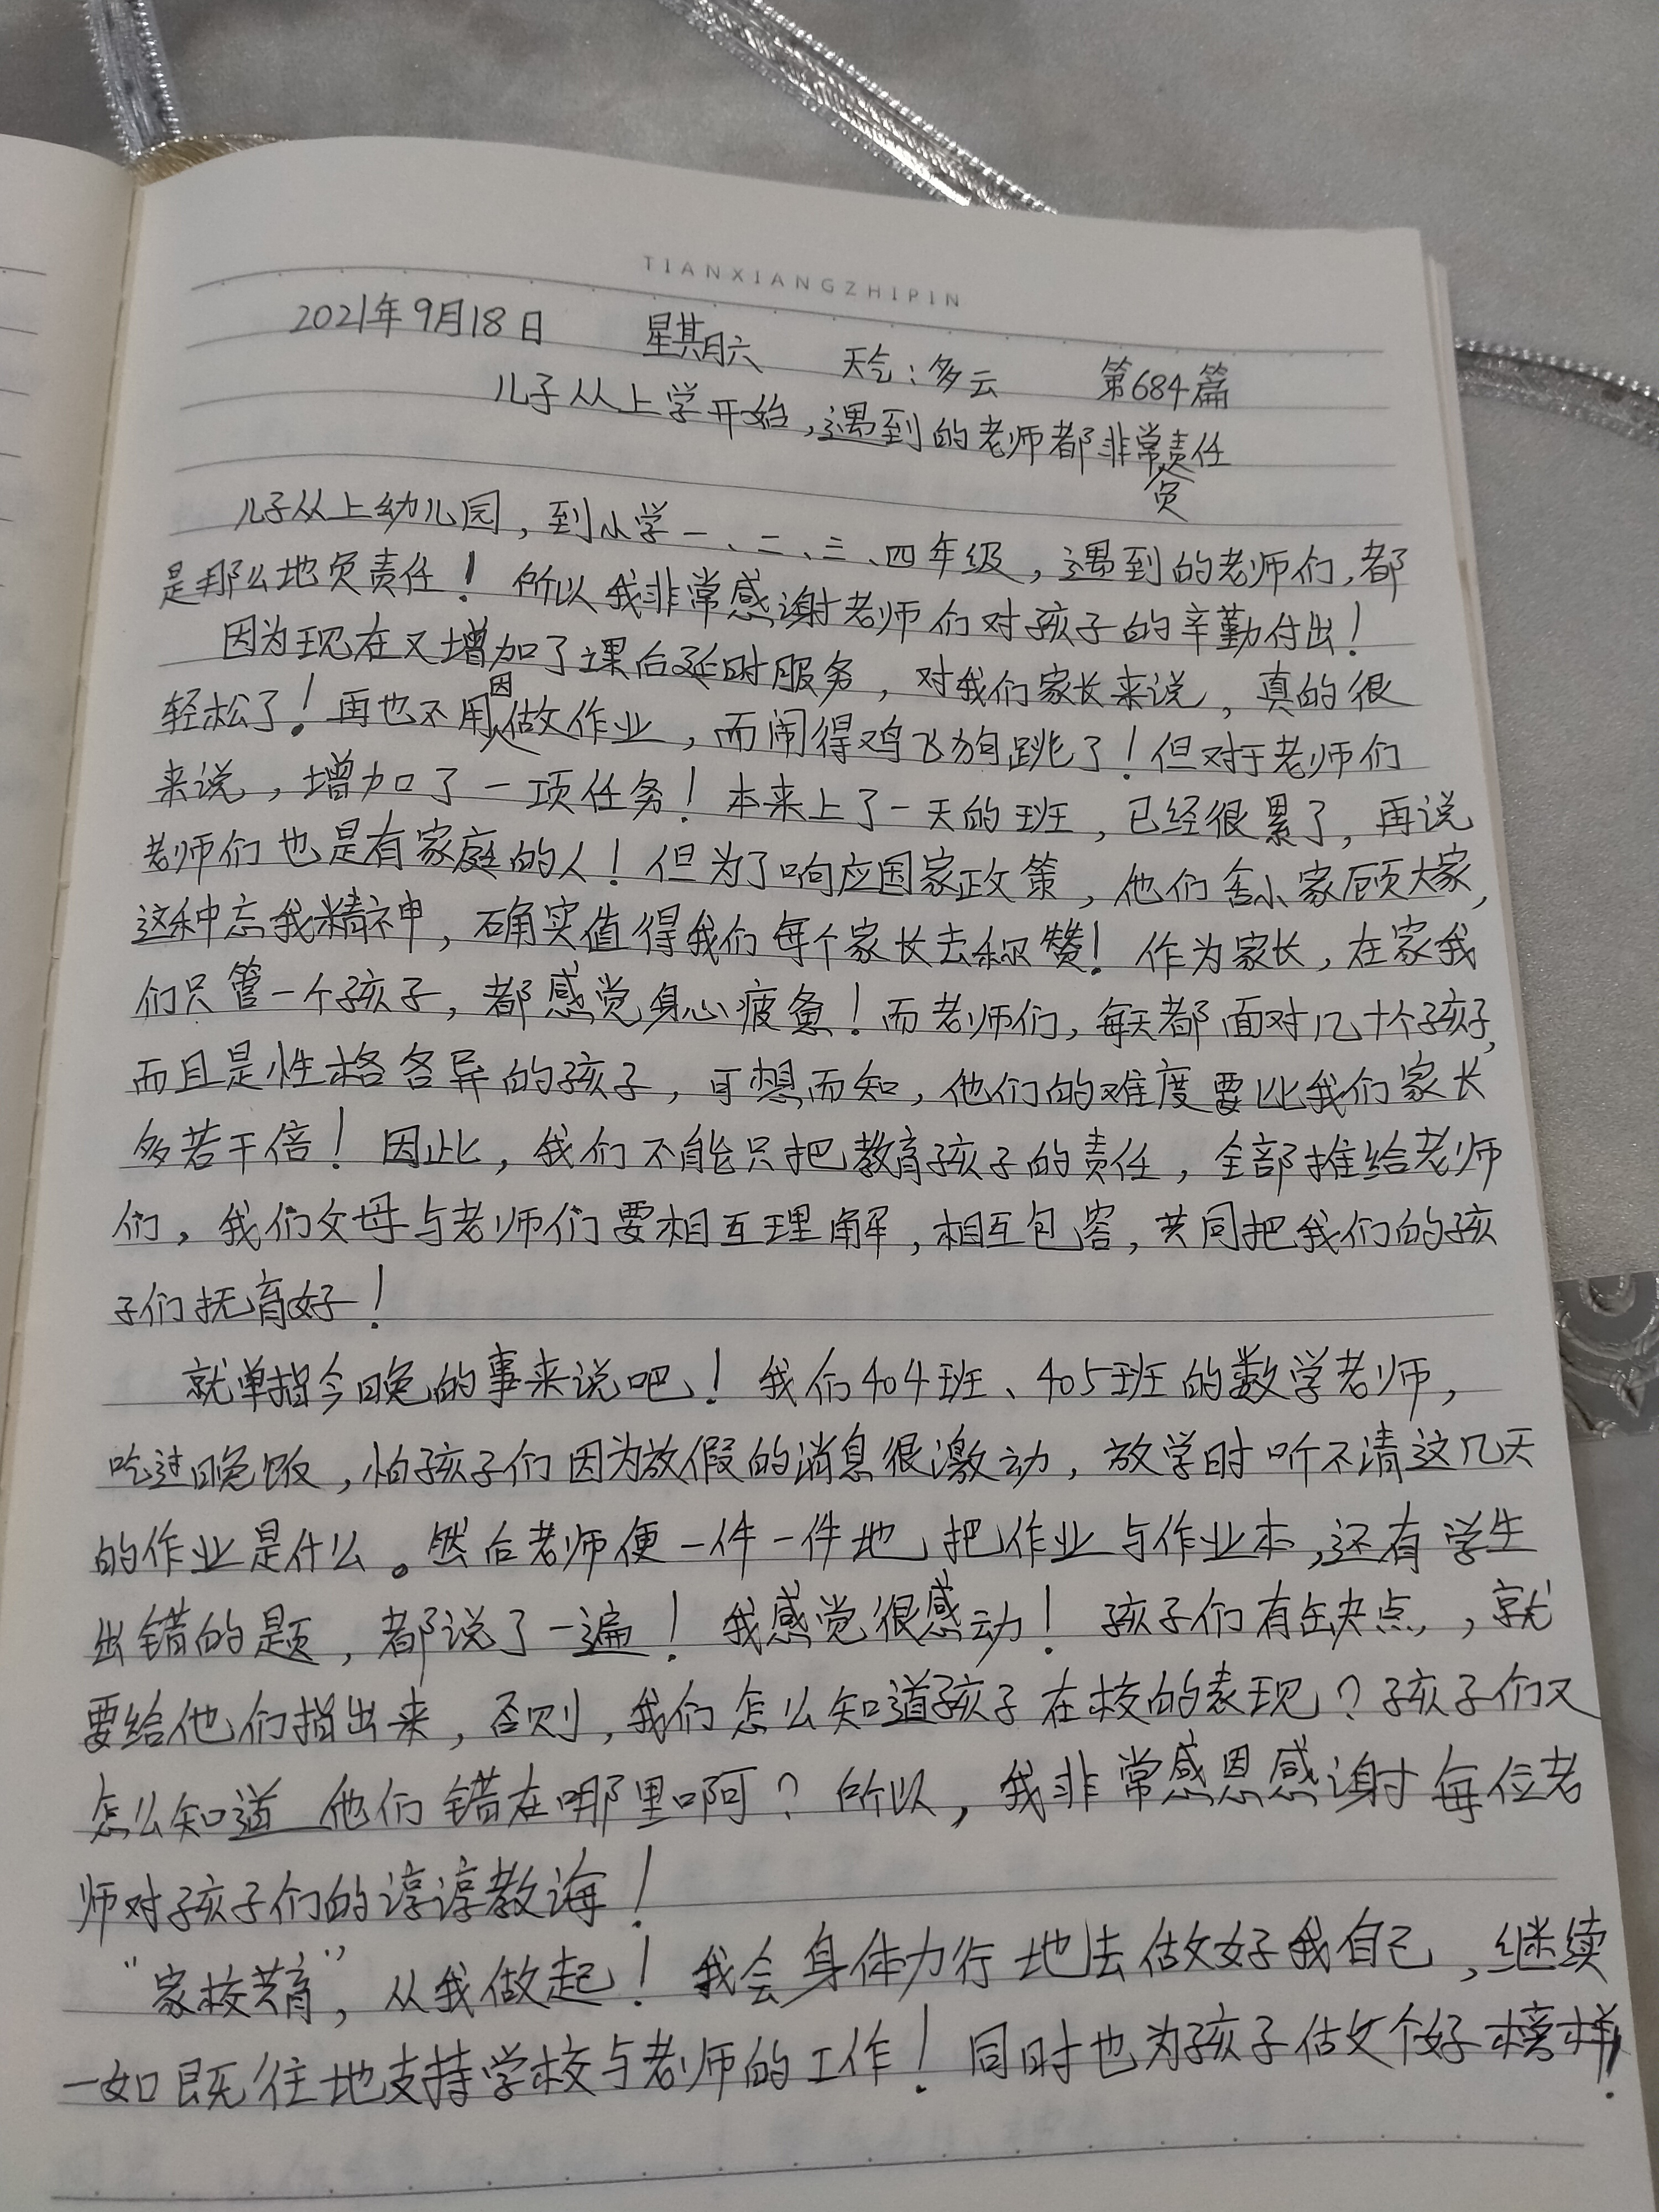 TIANXIANGZHIPIN
2021年9月18日 星期六 天气:多云 第684篇
儿子从上学开始,遇到的老师都非常负责任
儿子从上幼儿园,到小学一、二、三、四年级,遇到的老师们,都
是那么地负责任!所以我非常感谢老师们对孩子的辛勤付出!
因为现在又增加了课后延时服务,对我们家长来说,真的很
轻松了!再也不用因做作业,而闹得鸡飞狗跳了!但对于老师们
来说,增加了一项任务!本来上了一天的班,已经很累了,再说
老师们也是有家庭的人!但为了响应国家政策,他们舍小家顾大家,
这种忘我精神,确实值得我们每个家长去称赞!作为家长,在家我
们只管一个孩子,都感觉身心疲惫!而老师们,每天都面对几十个孩子,
而且是性格各异的孩子,可想而知,他们的难度要比我们家长
多若干倍!因此,我们不能只把教育孩子的责任,全部推给老师
们,我们父母与老师们要相互理解,相互包容,共同把我们的孩
子们抚育好!
就单指今晚的事来说吧!我们404班、405班的数学老师,
吃过晚饭,怕孩子们因为放假的消息很激动,放学时听不清这几天
的作业是什么。然后老师便一件一件地把作业与作业本,还有学生
出错的题,都说了一遍!我感觉很感动!孩子们有缺点,就
要给他们指出来,否则,我们怎么知道孩子在校的表现?孩子们又
怎么知道他们错在哪里啊?所以,我非常感恩感谢每位老
师对孩子们的谆谆教诲!
“家校共育”,从我做起!我会身体力行地去做好我自己,继续
一如既往地支持学校与老师的工作!同时也为孩子做个好榜样!